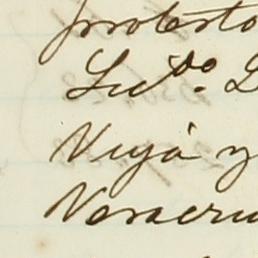 protesto
Licdo. D
Vieja y
Veracru